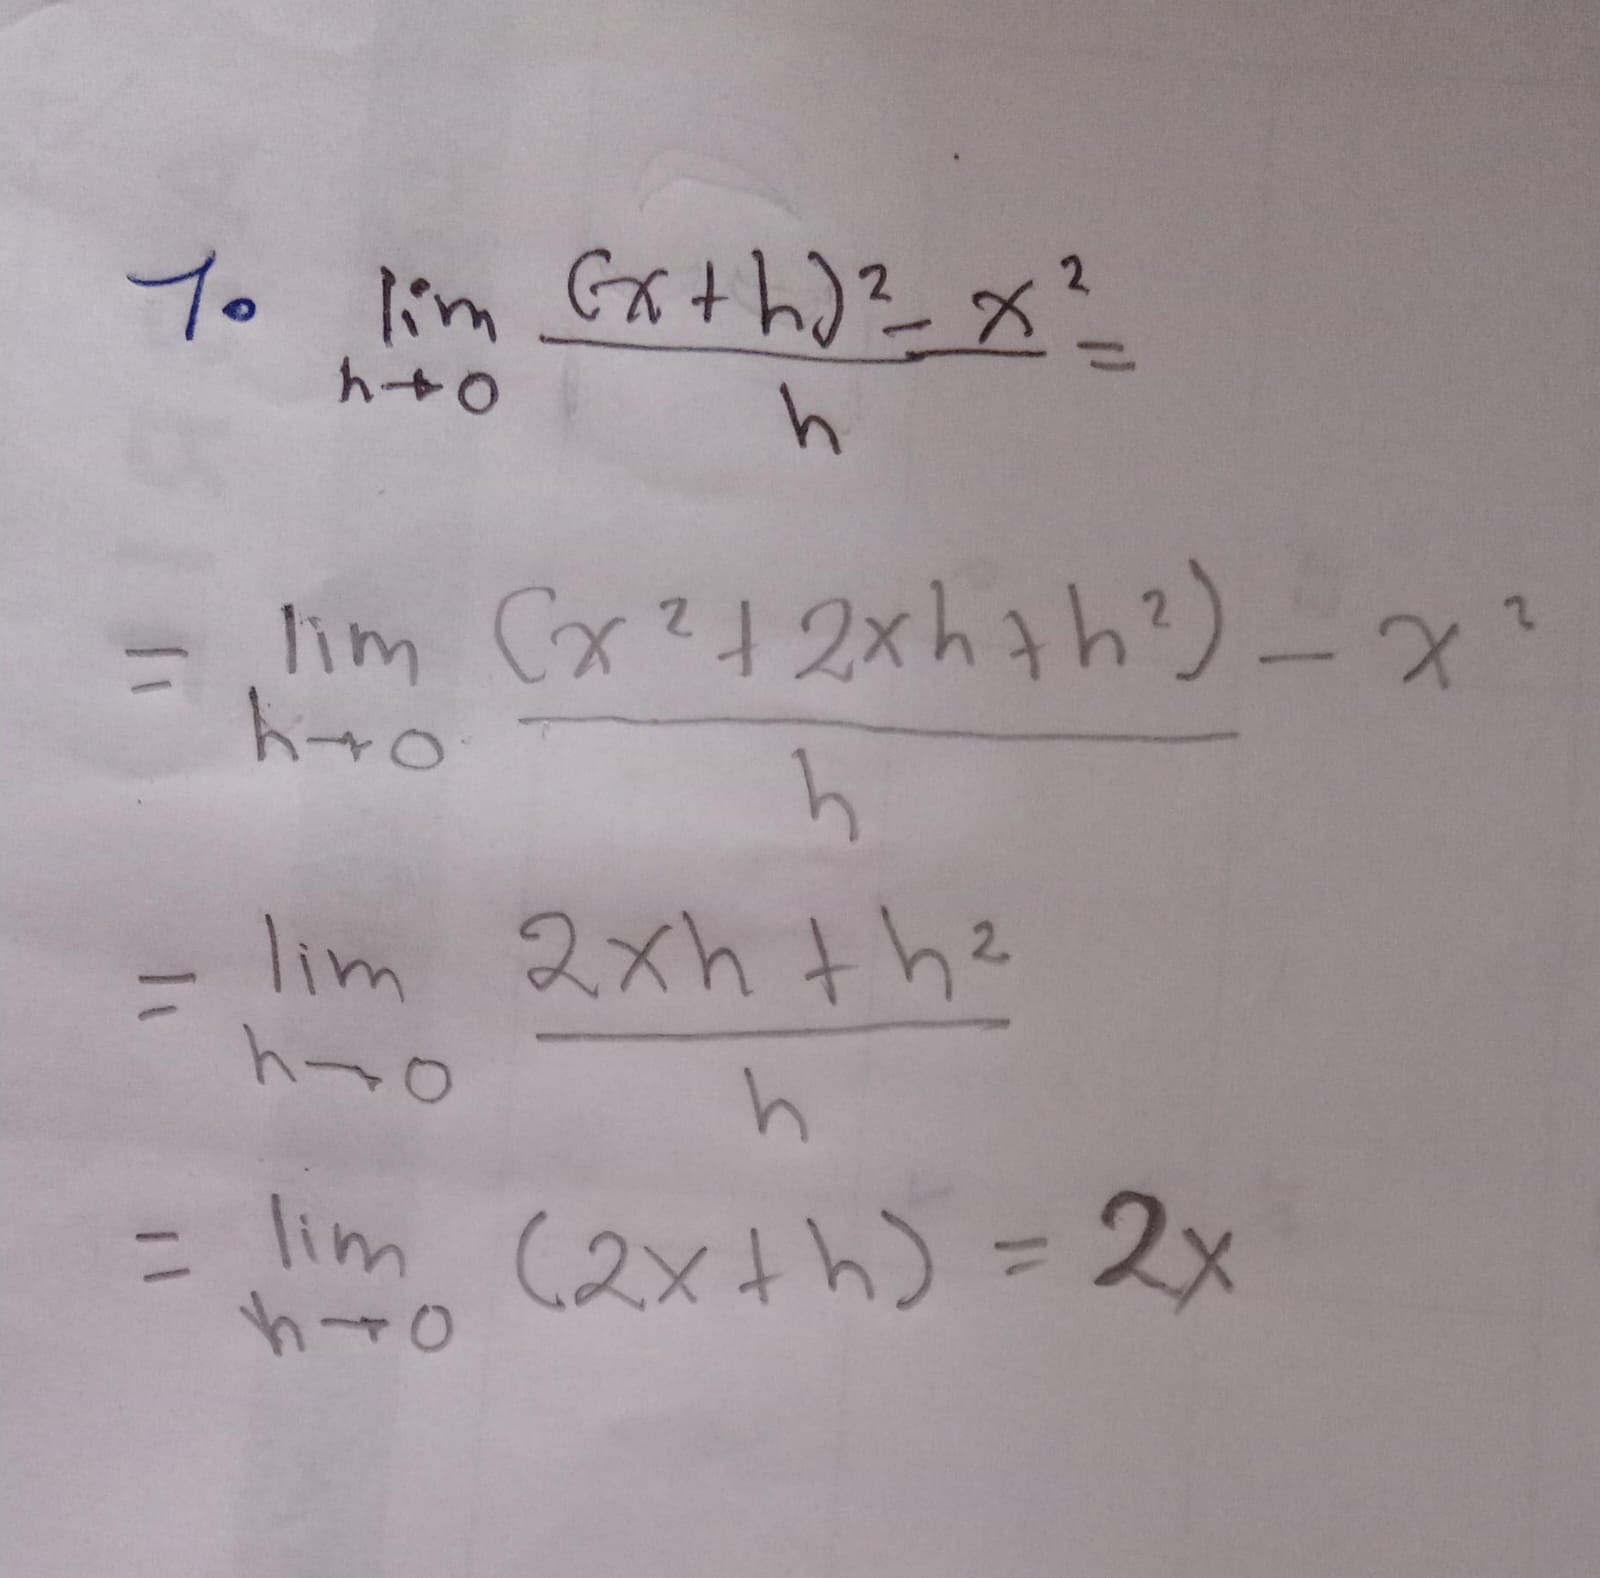 1. lim h→0 ((x+h)² - x²)/h =
= lim h→0 (x² + 2xh + h²)/h - x²
= lim h→0 (2xh + h²)/h
= lim h→0 (2x + h) = 2x